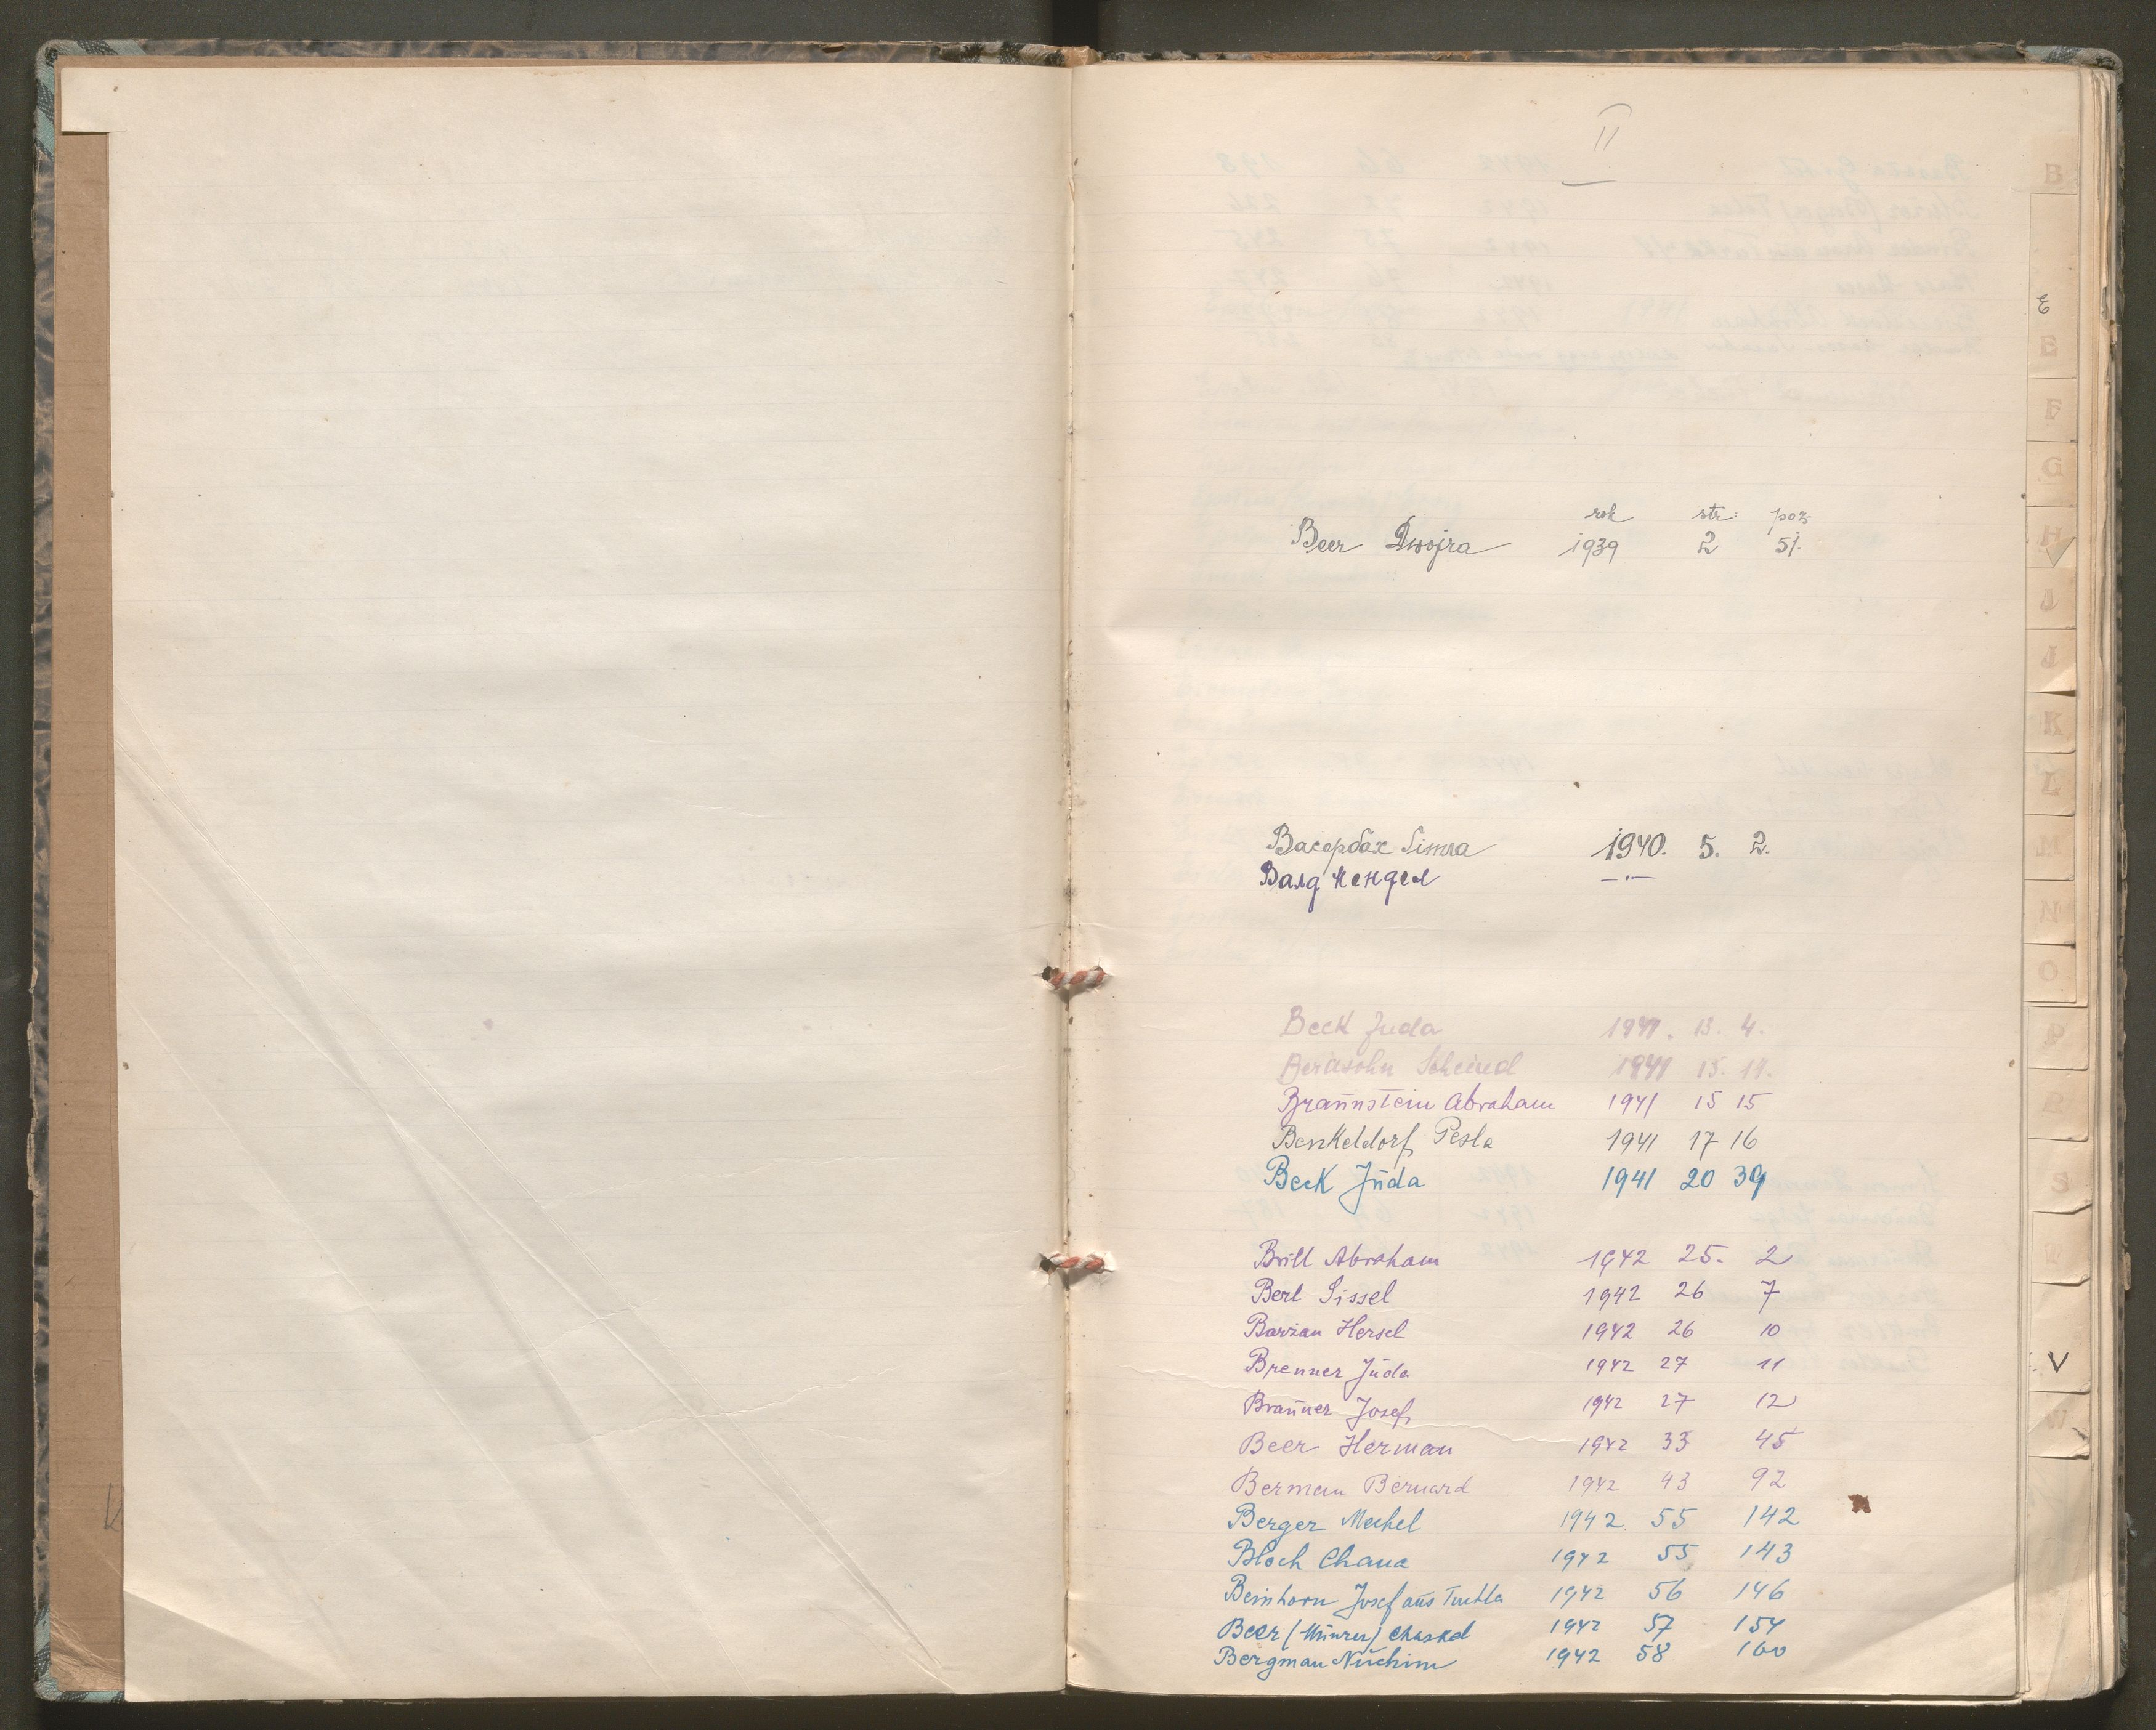 II
rok str: poz
Beer Dwojra 1939 2 51.
Васербах 1940. 5. 2.
Валд Мендел —·—
Beck Juda 1941. 13. 4.
Scheindl 1941 15. 11.
Braūnstein Abraham 1941 15 15
Benkeldorf Pesla 1941 17 16
Beck Jūda 1941 20 39
Brill Abraham 1942 25. 2
Berl Sissel 1942 26 7
Barzan Hersel 1942 26 10
Brenner Jūda 1942 27 11
Braūner Josef 1942 27 12
Beer Herman 1942 33 45
Berman Bernard 1942 43 92
Berger Mechel 1942. 55 142
Bloch Chana 1942 55 143
Beinhorn Josef aūs Tuchla 1942 56 146
Beer ( ) Chaskel 1942 57 154
Bergman Nūchim 1942 58 160
B
E
E
F
G
H
I
J
K
L
M
N
O
P
R
S
T
V
W